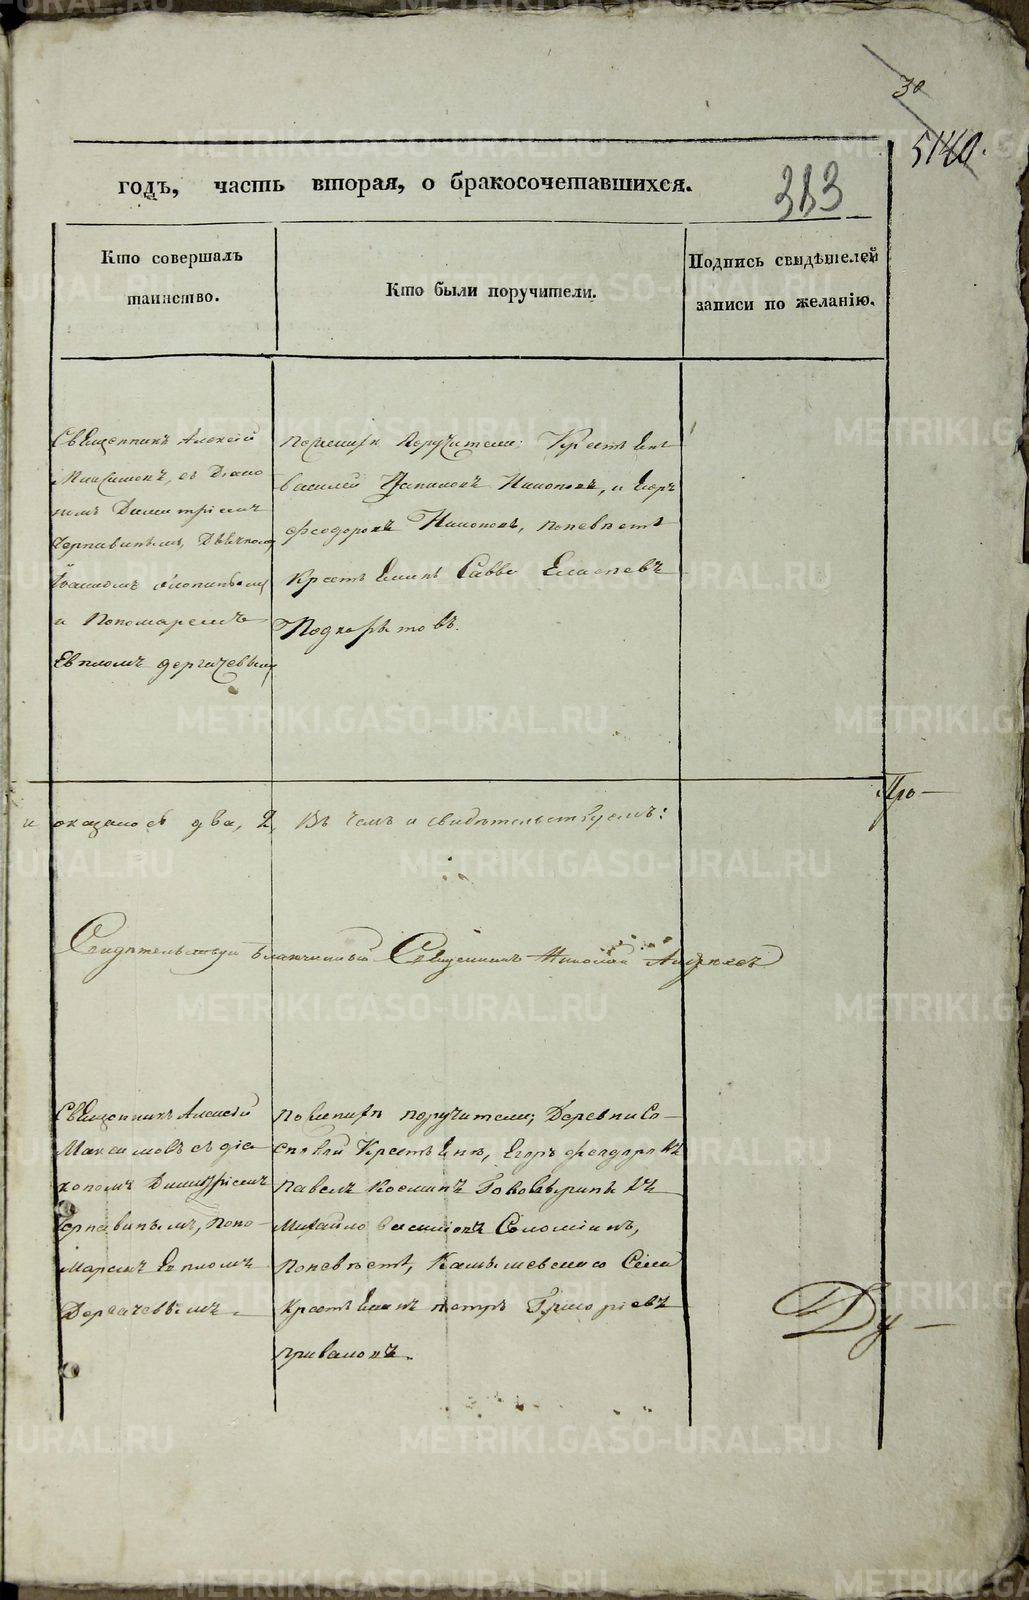 30
5140.
годъ, часть вторая, о бракосочетавшихся.
313
Кто совершалъ
таинство.
Кто были поручители.
Подпись свидѣтелей
записи по желанію.
Священникъ Алексій
Максимовъ, съ Діако
номъ Димитріемъ
Дьячкомъ
Іоанномъ
и Пономаремъ
Евпломъ Дергачевымъ
Поженихѣ Поручители: Крестьяне
Василей Никоновъ, и Егоръ
Феодоровъ Никоновъ, поневѣстѣ
Крестьянинъ Савва
Подкорытовъ.
и оказалось два, 2, Въ чемъ и свидѣтельствуемъ:
Про-
Свидѣтельствуя Благочинный Священникъ Николай Андреевъ
Священникъ Алексій
Максимовъ съ діа
кономъ Димитріемъ
Поно-
маремъ Евпломъ
Дергачевымъ.
Поженихѣ поручители; Деревни
Крестьяне, Егоръ Феодоровъ
Павелъ Косминъ
Михайло Соломеинъ,
Поневѣстѣ, Камышевскаго Села
Крестьянинъ Петръ Григоріевъ
Приваловъ.
Ду-
METRIKI.GASO-URAL.RU